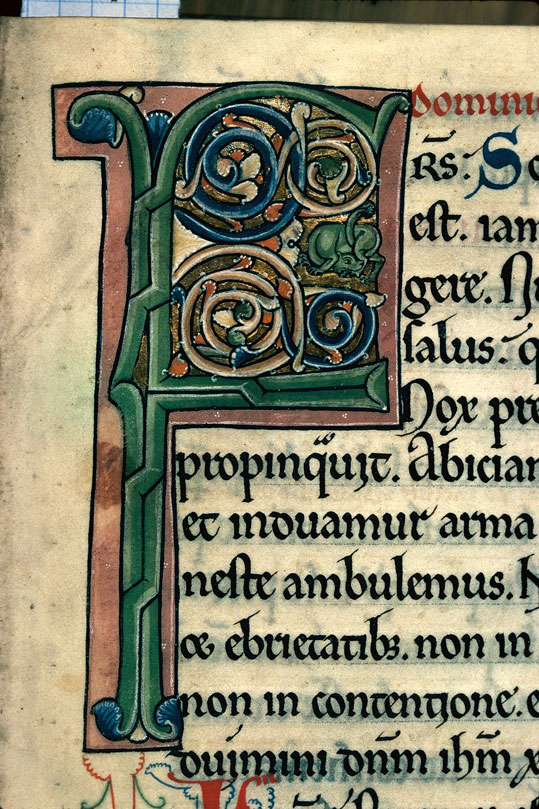 Dominic
F R̄S: Sc
est. iam
gere. Nu
salus: q
Nox pre
propinquit. Abician
et induamur arma
neste ambulemus. N
& ebrietatibꝫ. non in
non in contentione. e
duimini dn̄m ihm̄ x